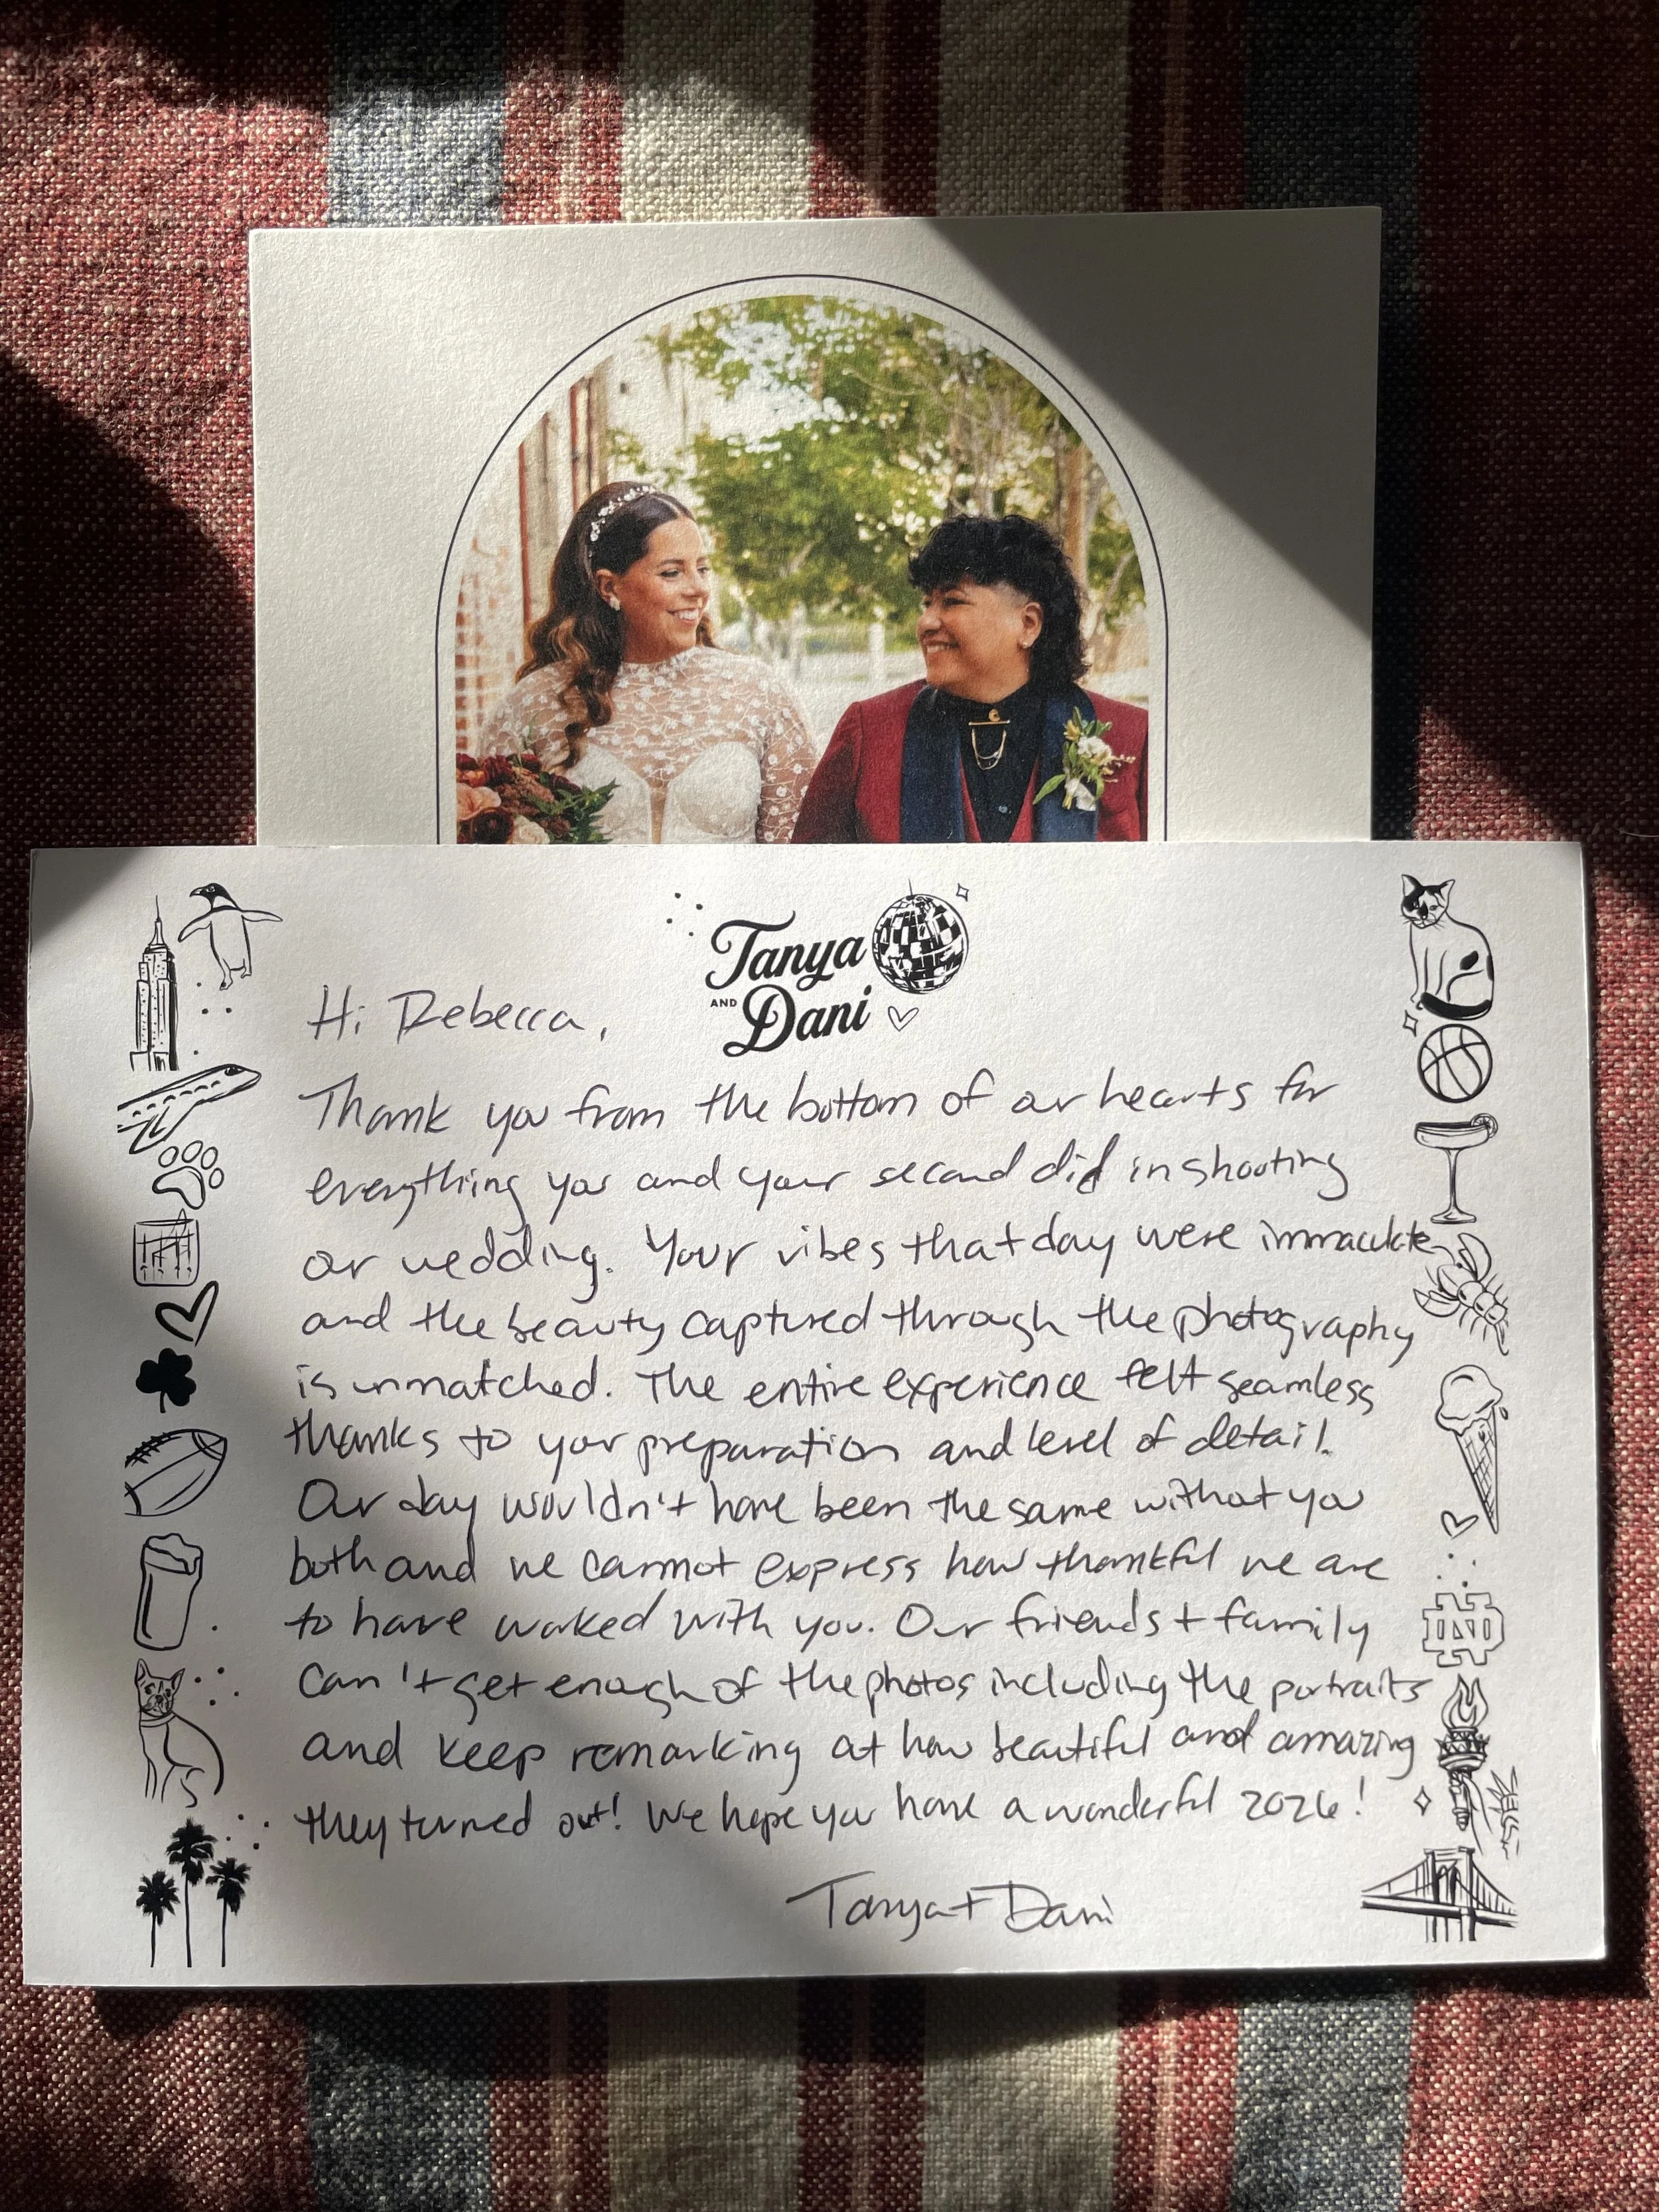 Tanya
AND
Dani
Hi Rebecca,
Thank you from the bottom of our hearts for
everything you and your second did in shooting
our wedding. Your vibes that day were immaculate
and the beauty captured through the photography
is unmatched. The entire experience felt seamless
thanks to your preparation and level of detail.
Our day wouldn't have been the same without you
both and we cannot express how thankful we are
to have worked with you. Our friends + family
can't get enough of the photos including the portraits
and keep remarking at how beautiful and amazing
they turned out! We hope you have a wonderful 2026!
Tanya + Dani
ND